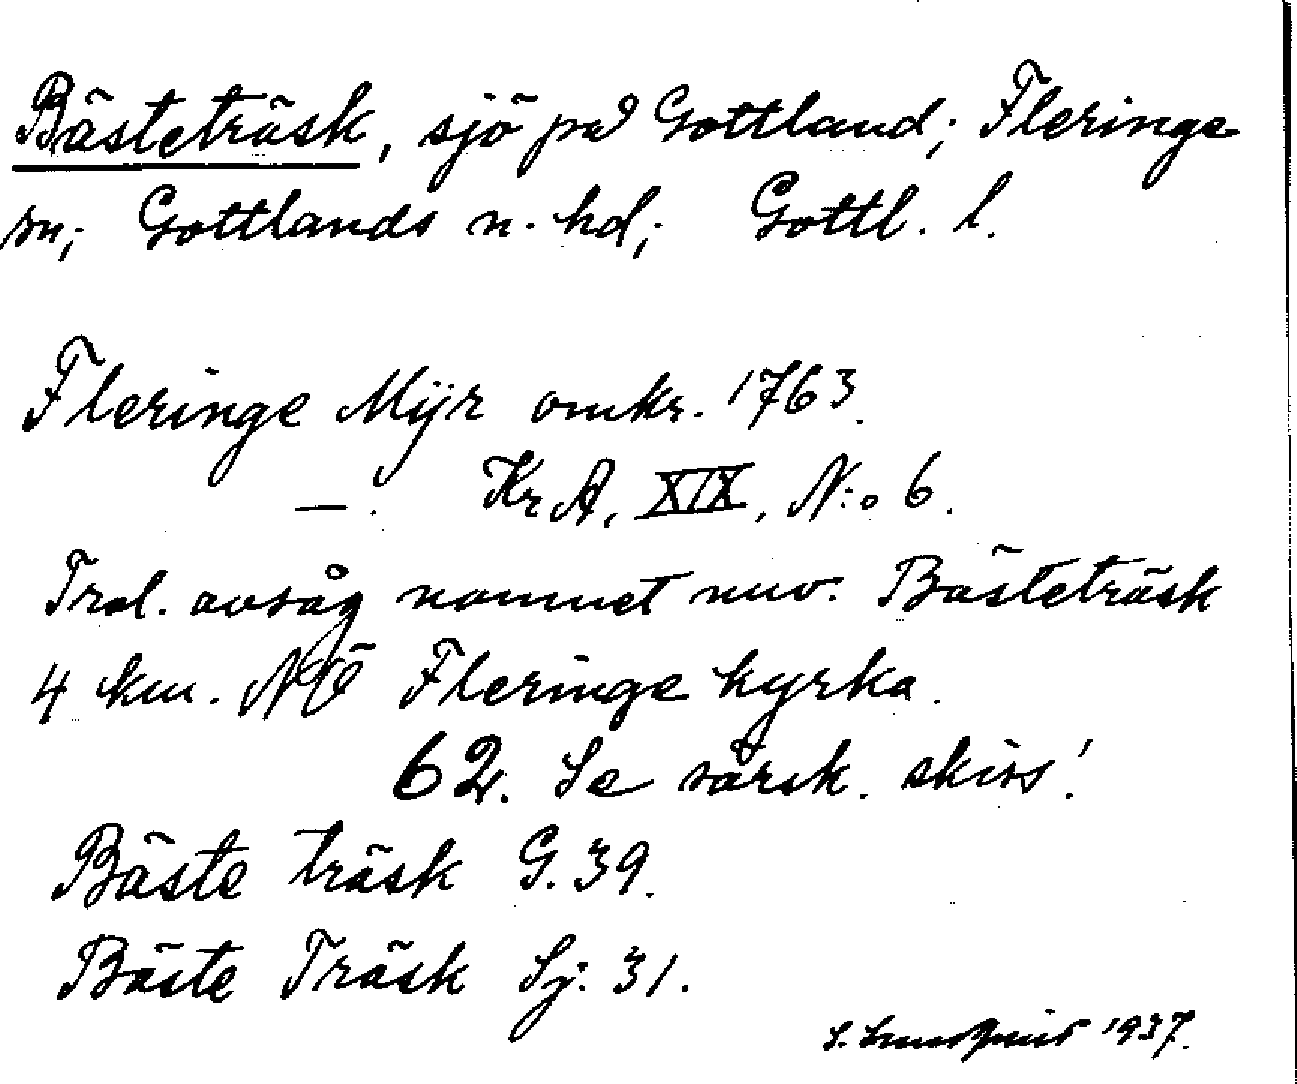 Bästeträsk, sjö på Gottland; Fleringe
sn; Gottlands n. hd; Gottl. l.
Fleringe Mÿr omkr. 1763.
—. Kr A, XIX, N:o 6.
Trol. avsåg namnet nuv. Bästeträsk
4 km. NÖ Fleringe kyrka.
62. Se särsk. skiss!
Bäste träsk G. 39.
Bäste Träsk Sj. 31.
S. 1937.